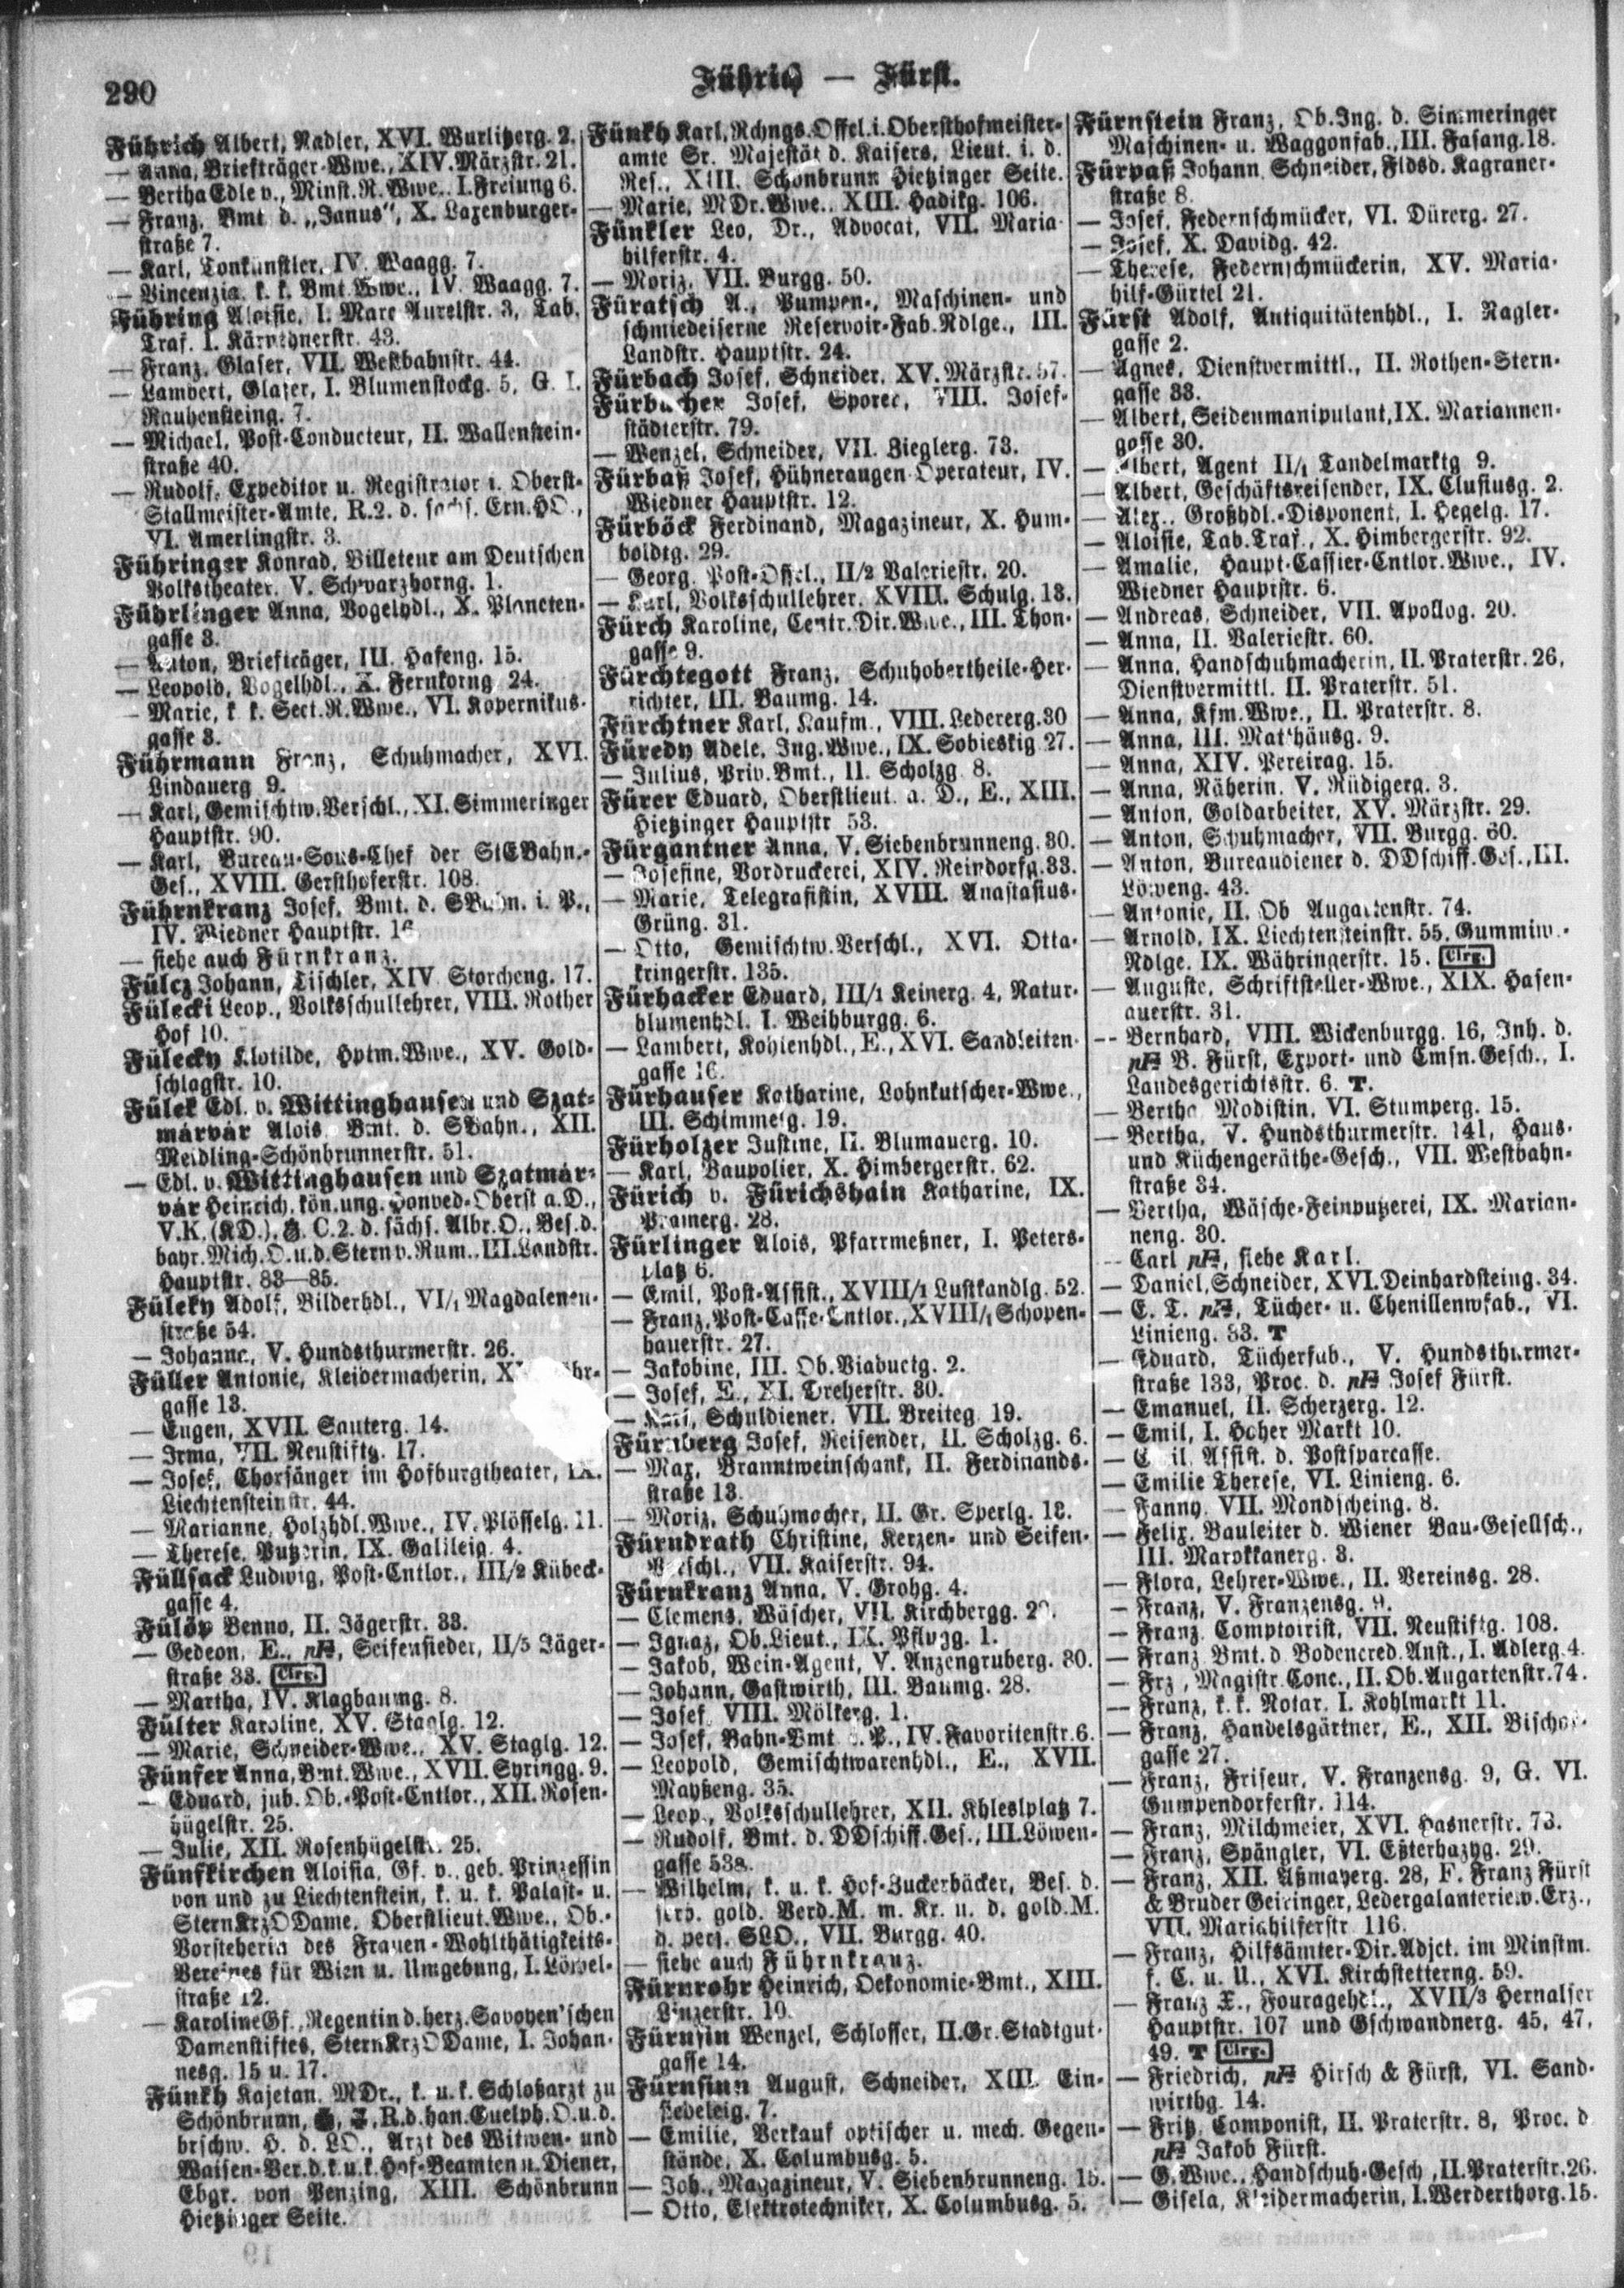 290
Führich — Fürst.
Führich Albert, Radler, XVI. Wurlitzerg. 2.
— Anna, Briefträger-Wwe., XIV. Märzstr. 21.
— Bertha Edle v., Minst.R.Wwe., I. Freiung 6.
— Franz, Bmt. d. „Janus“, X. Laxenburger-
straße 7.
— Karl, Tonkünstler, IV. Waagg. 7.
— Vincenzia, k. k. Bmt.Wwe., IV. Waagg. 7.
Führing Aloisie, I. Marc Aurelstr. 3, Tab.
Traf. I. Kärnthnerstr. 43.
— Franz, Glaser, VII. Westbahnstr. 44.
— Lambert, Glaser, I. Blumenstockg. 5, G. I.
Rauhensteing. 7.
— Michael, Post-Conducteur, II. Wallenstein-
straße 40.
— Rudolf, Expeditor u. Registrator i. Oberst-
Stallmeister-Amte, R.2. d. sachs. Ern.HO.,
VI. Amerlingstr. 3.
Führinger Konrad, Billeteur am Deutschen
Volkstheater, V. Schwarzhorng. 1.
Führlinger Anna, Vogelhdl., X. Planeten-
gasse 3.
— Anton, Briefträger, III. Hafeng. 15.
— Leopold, Vogelhdl., X. Fernkorng. 24.
— Marie, k. k. Sect.R.Wwe., VI. Kopernikus-
gasse 3.
Führmann Franz, Schuhmacher, XVI.
Lindauerg 9.
— Karl, Gemischtw.Verschl., XI. Simmeringer
Hauptstr. 90.
— Karl, Bureau-Sous-Chef der StEBahn.-
Ges., XVIII. Gersthoferstr. 108.
Führnkranz Josef, Bmt. d. SBahn. i. P.,
IV. Wiedner Hauptstr. 16
— siehe auch Fürnkranz.
Fülcz Johann, Tischler, XIV. Storcheng. 17.
Fülecki Leop., Volksschullehrer, VIII. Rother
Hof 10.
Fülecky Klotilde, Hptm.Wwe., XV. Gold-
schlagstr. 10.
Fülek Edl. v. Wittinghausen und Szat-
márvár Alois, Bmt. d. SBahn., XII.
Meidling-Schönbrunnerstr. 51.
— Edl. v. Wittinghausen und Szatmár-
vár Heinrich, kön.ung. Honved-Oberst a.D.,
V.K.(KD.), C.2. d. sächs. Albr.O., Bes.d.
bayr.Mich.O.u.d.Stern v. Rum., III. Landstr.
Hauptstr. 83—85.
Füleky Adolf, Bilderhdl., VI/1 Magdalenen-
straße 54.
— Johanna, V. Hundsthurmerstr. 26.
Füller Antonie, Kleidermacherin,
gasse 13.
— Eugen, XVII. Sauterg. 14.
— Irma, VII. Neustiftg. 17.
— Josef, Chorsänger im Hofburgtheater, IX.
Liechtensteinstr. 44.
— Marianne, Holzhdl.Wwe., IV. Plösselg. 11.
— Therese, Putzerin, IX. Galileig. 4.
Füllsack Ludwig, Post-Cntlor., III/2 Kübeck-
gasse 4.
Fülöp Benno, II. Jägerstr. 33.
— Gedeon, E., Seifensieder, II/5 Jäger-
straße 33. Clrg.
— Martha, IV. Klagbaumg. 8.
Fülter Karoline, XV. Staglg. 12.
— Marie, Schneider-Wwe., XV. Staglg. 12.
Fünfer Anna, Bmt.Wwe., XVII. Syringg. 9.
— Eduard, jub. Ob.-Post-Cntlor., XII. Rosen-
hügelstr. 25.
— Julie, XII. Rosenhügelstr. 25.
Fünfkirchen Aloisia, Gf. v., geb. Prinzessin
von und zu Liechtenstein, k. u. k. Palast- u.
SternKrzODame, Oberstlieut.Wwe., Ob.-
Vorsteherin des Frauen-Wohlthätigkeits-
Vereines für Wien u. Umgebung, I. Löwel-
straße 12.
— Karoline Gf., Regentin d. herz. Savoyen'schen
Damenstiftes, SternKrzODame, I. Johan-
nesg. 15 u. 17.
Fünkh Kajetan, MDr., k. u. k. Schloßarzt zu
Schönbrunn, R.d.han.Guelph.O.u.d.
brschw. H. d. LO., Arzt des Witwen- und
Waisen-Ver.d.k.u.k.Hof-Beamten u. Diener,
Ebgr. von Penzing, XIII. Schönbrunn
Hietzinger Seite.
Fünkh Karl, Rchngs.Offcl.i.Obersthofmeister-
amte Sr. Majestät d. Kaisers, Lieut. i. d.
Res., XIII. Schönbrunn Hietzinger Seite.
— Marie, MDr.Wwe., XIII. Hadikg. 106.
Fünkler Leo, Dr., Advocat, VII. Maria-
hilferstr. 4.
— Moriz, VII. Burgg. 50.
Füratsch A., Pumpen-, Maschinen- und
schmiedeiserne Reservoir-Fab.Ndlge., III.
Landstr. Hauptstr. 24.
Fürbach Josef, Schneider, XV. Märzstr. 57.
Fürbacher Josef, Sporer, VIII. Josef-
städterstr. 79.
— Wenzel, Schneider, VII. Zieglerg. 73.
Fürbaß Josef, Hühneraugen-Operateur, IV.
Wiedner Hauptstr. 12.
Fürböck Ferdinand, Magazineur, X. Hum-
boldtg. 29.
— Georg, Post-Offcl., II/2 Valeriestr. 20.
— Karl, Volksschullehrer, XVIII. Schulg. 13.
Fürch Karoline, Centr.Dir.Wwe., III. Thon-
gasse 9.
Fürchtegott Franz, Schuhobertheile-Her-
richter, III. Baumg. 14.
Fürchtner Karl, Kaufm., VIII. Ledererg. 30
Füredy Adele, Ing.Wwe., IX. Sobieskig. 27.
— Julius, Priv.Bmt., II. Scholzg. 8.
Fürer Eduard, Oberstlieut. a. D., E., XIII.
Hietzinger Hauptstr. 53.
Fürgantner Anna, V. Siebenbrunneng. 30.
— Josefine, Vordruckerei, XIV. Reindorfg. 33.
— Marie, Telegrafistin, XVIII. Anastasius-
Grüng. 31.
— Otto, Gemischtw.Verschl., XVI. Otta-
kringerstr. 135.
Fürhacker Eduard, III/1 Keinerg. 4, Natur-
blumenhdl. I. Weihburgg. 6.
— Lambert, Kohlenhdl., E., XVI. Sandleiten-
gasse 16.
Fürhauser Katharine, Lohnkutscher-Wwe.,
III. Schimmelg. 19.
Fürholzer Justine, II. Blumauerg. 10.
— Karl, Baupolier, X. Himbergerstr. 62.
Fürich v. Fürichshain Katharine, IX.
Pramerg. 28.
Fürlinger Alois, Pfarrmeßner, I. Peters-
platz 6.
— Emil, Post-Assist., XVIII/1 Lustkandlg. 52.
— Franz, Post-Casse-Cntlor., XVIII/1 Schopen-
hauerstr. 27.
— Jakobine, III. Ob.Viaductg. 2.
— Josef, E., XI. Dreherstr. 30.
— Karl, Schuldiener, VII. Breiteg. 19.
Fürnberg Josef, Reisender, II. Scholzg. 6.
— Max, Branntweinschank, II. Ferdinands-
straße 13.
— Moriz, Schuhmacher, II. Gr. Sperlg. 18.
Fürndrath Christine, Kerzen- und Seifen-
Verschl., VII. Kaiserstr. 94.
Fürnkranz Anna, V. Grohg. 4.
— Clemens, Wäscher, VII. Kirchbergg.
— Ignaz, Ob.Lieut., IX. Pflugg. 1.
— Jakob, Wein-Agent, V. Anzengruberg. 30.
— Johann, Gastwirth, III. Baumg. 28.
— Josef, VIII. Mölkerg. 1.
— Josef, Bahn-Bmt. i. P., IV. Favoritenstr. 6.
— Leopold, Gemischtwarenhdl., E., XVII.
Mayßeng. 35.
— Leop., Volksschullehrer, XII. Khleslplatz 7.
— Rudolf, Bmt. d. DDschiff.Ges., III. Löwen-
gasse 53a.
— Wilhelm, k. u. k. Hof-Zuckerbäcker, Bes. d.
serb. gold. Verd.M. m. Kr. u. d. gold.M.
d. pers. SLO., VII. Burgg. 40.
— siehe auch Führnkranz.
Fürnrohr Heinrich, Oekonomie-Bmt., XIII.
Linzerstr. 10.
Fürnsin Wenzel, Schlosser, II.Gr.Stadtgut-
gasse 14.
Fürnsinn August, Schneider, XIII. Ein-
siedeleig. 7.
— Emilie, Verkauf optischer u. mech. Gegen-
stände, X. Columbusg. 5.
— Joh., Magazineur, V. Siebenbrunneng. 15.
— Otto, Elektrotechniker, X. Columbusg. 5.
Fürnstein Franz, Ob.Ing. d. Simmeringer
Maschinen- u. Waggonfab., III. Fasang. 18.
Fürpaß Johann, Schneider, Fldsd. Kagraner-
straße 8.
— Josef, Federnschmücker, VI. Dürerg. 27.
— Josef, X. Davidg. 42.
— Therese, Federnschmückerin, XV. Maria-
hilf-Gürtel 21.
Fürst Adolf, Antiquitätenhdl., I. Nagler-
gasse 2.
— Agnes, Dienstvermittl., II. Rothen-Stern-
gasse 33.
— Albert, Seidenmanipulant, IX. Mariannen-
gasse 30.
— Albert, Agent II/1 Tandelmarktg 9.
— Albert, Geschäftsreisender, IX. Clusiusg. 2.
— Alex., Großhdl.-Disponent, I. Hegelg. 17.
— Aloisie, Tab.Traf., X. Himbergerstr. 92.
— Amalie, Haupt-Cassier-Cntlor.Wwe., IV.
Wiedner Hauptstr. 6.
— Andreas, Schneider, VII. Apollog. 20.
— Anna, II. Valeriestr. 60.
— Anna, Handschuhmacherin, II. Praterstr. 26,
Dienstvermittl. II. Praterstr. 51.
— Anna, Kfm.Wwe., II. Praterstr. 8.
— Anna, III. Mathäusg. 9.
— Anna, XIV. Pereirag. 15.
— Anna, Näherin, V. Rüdigerg. 3.
— Anton, Goldarbeiter, XV. Märzstr. 29.
— Anton, Schuhmacher, VII. Burgg. 60.
— Anton, Bureaudiener d. DDschiff.Ges., III.
Löweng. 43.
— Antonie, II. Ob Augartenstr. 74.
— Arnold, IX. Liechtensteinstr. 55, Gummiw.-
Ndlge. IX. Währingerstr. 15. Clrg.
— Auguste, Schriftsteller-Wwe., XIX. Hasen-
auerstr. 31.
— Bernhard, VIII. Wickenburgg. 16, Inh. d.
B. Fürst, Export- und Cmsn.Gesch., I.
Landesgerichtsstr. 6. T.
— Bertha Modistin, VI. Stumperg. 15.
— Bertha, V. Hundsthurmerstr. 141, Haus-
und Küchengeräthe-Gesch., VII. Westbahn-
straße 34.
— Bertha, Wäsche-Feinputzerei, IX. Marian-
neng. 30.
— Carl, siehe Karl.
— Daniel, Schneider, XVI. Deinhardsteing. 34.
— E. T., Tücher- u. Chenillenwfab., VI.
Linieng. 33. T
— Eduard, Tücherfab., V. Hundsthurmer-
straße 133, Proc. d. Josef Fürst.
— Emanuel, II. Scherzerg. 12.
— Emil, I. Hoher Markt 10.
— Emil, Assist. d. Postsparcasse.
— Emilie Therese, VI. Linieng. 6.
— Fanny, VII. Mondscheing. 8.
— Felix, Bauleiter d. Wiener Bau-Gesellsch.,
III. Marokkanerg. 3.
— Flora, Lehrer-Wwe., II. Vereinsg. 28.
— Franz, V. Franzensg. 9.
— Franz, Comptoirist, VII. Neustiftg. 108.
— Franz, Bmt. d. Bodencred.Anst., I. Adlerg. 4.
— Frz., Magistr.Conc., II. Ob.Augartenstr. 74.
— Franz, k. k. Notar, I. Kohlmarkt 11.
— Franz, Handelsgärtner, E., XII. Bischof-
gasse 27.
— Franz, Friseur, V. Franzensg. 9, G. VI.
Gumpendorferstr. 114.
— Franz, Milchmeier, XVI. Hasnerstr. 73.
— Franz, Spängler, VI. Eßterhazyg. 29.
— Franz, XII. Aßmayerg. 28, F. Franz Fürst
& Bruder Geiringer, Ledergalanteriew.Erz.,
VII. Mariahilferstr. 116.
— Franz, Hilfsämter-Dir.Adjct. im Minstm.
f. C. u. U., XVI. Kirchstetterng. 59.
— Franz X., Fouragehdl., XVII/3 Hernalser
Hauptstr. 107 und Gschwandnerg. 45, 47,
49. T Clrg.
— Friedrich, Hirsch & Fürst, VI. Sand-
wirthg. 14.
— Fritz, Componist, II. Praterstr. 8, Proc. d
Jakob Fürst.
— G.Wwe., Handschuh-Gesch., II. Praterstr. 26.
— Gisela, Kleidermacherin, I. Werderthorg. 15.